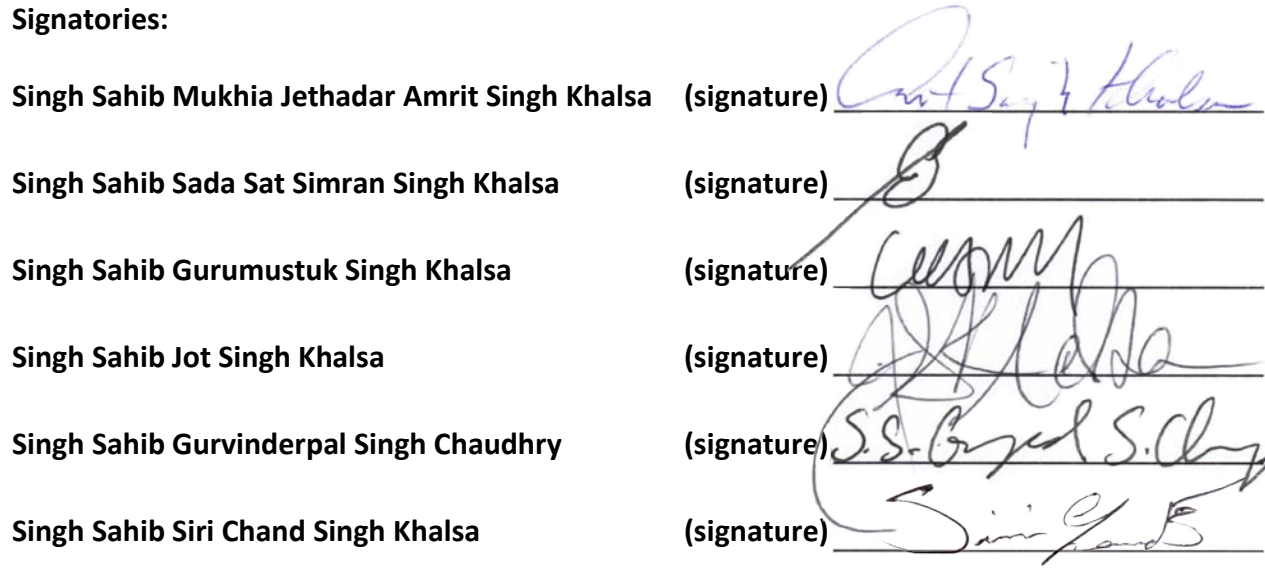 Signatories:
Singh Sahib Mukhia Jethadar Amrit Singh Khalsa (signature) Amrit Singh Khalsa
Singh Sahib Sada Sat Simran Singh Khalsa (signature)
Singh Sahib Gurumustuk Singh Khalsa (signature)
Singh Sahib Jot Singh Khalsa (signature) Khalsa
Singh Sahib Gurvinderpal Singh Chaudhry (signature) S.S. S.
Singh Sahib Siri Chand Singh Khalsa (signature)